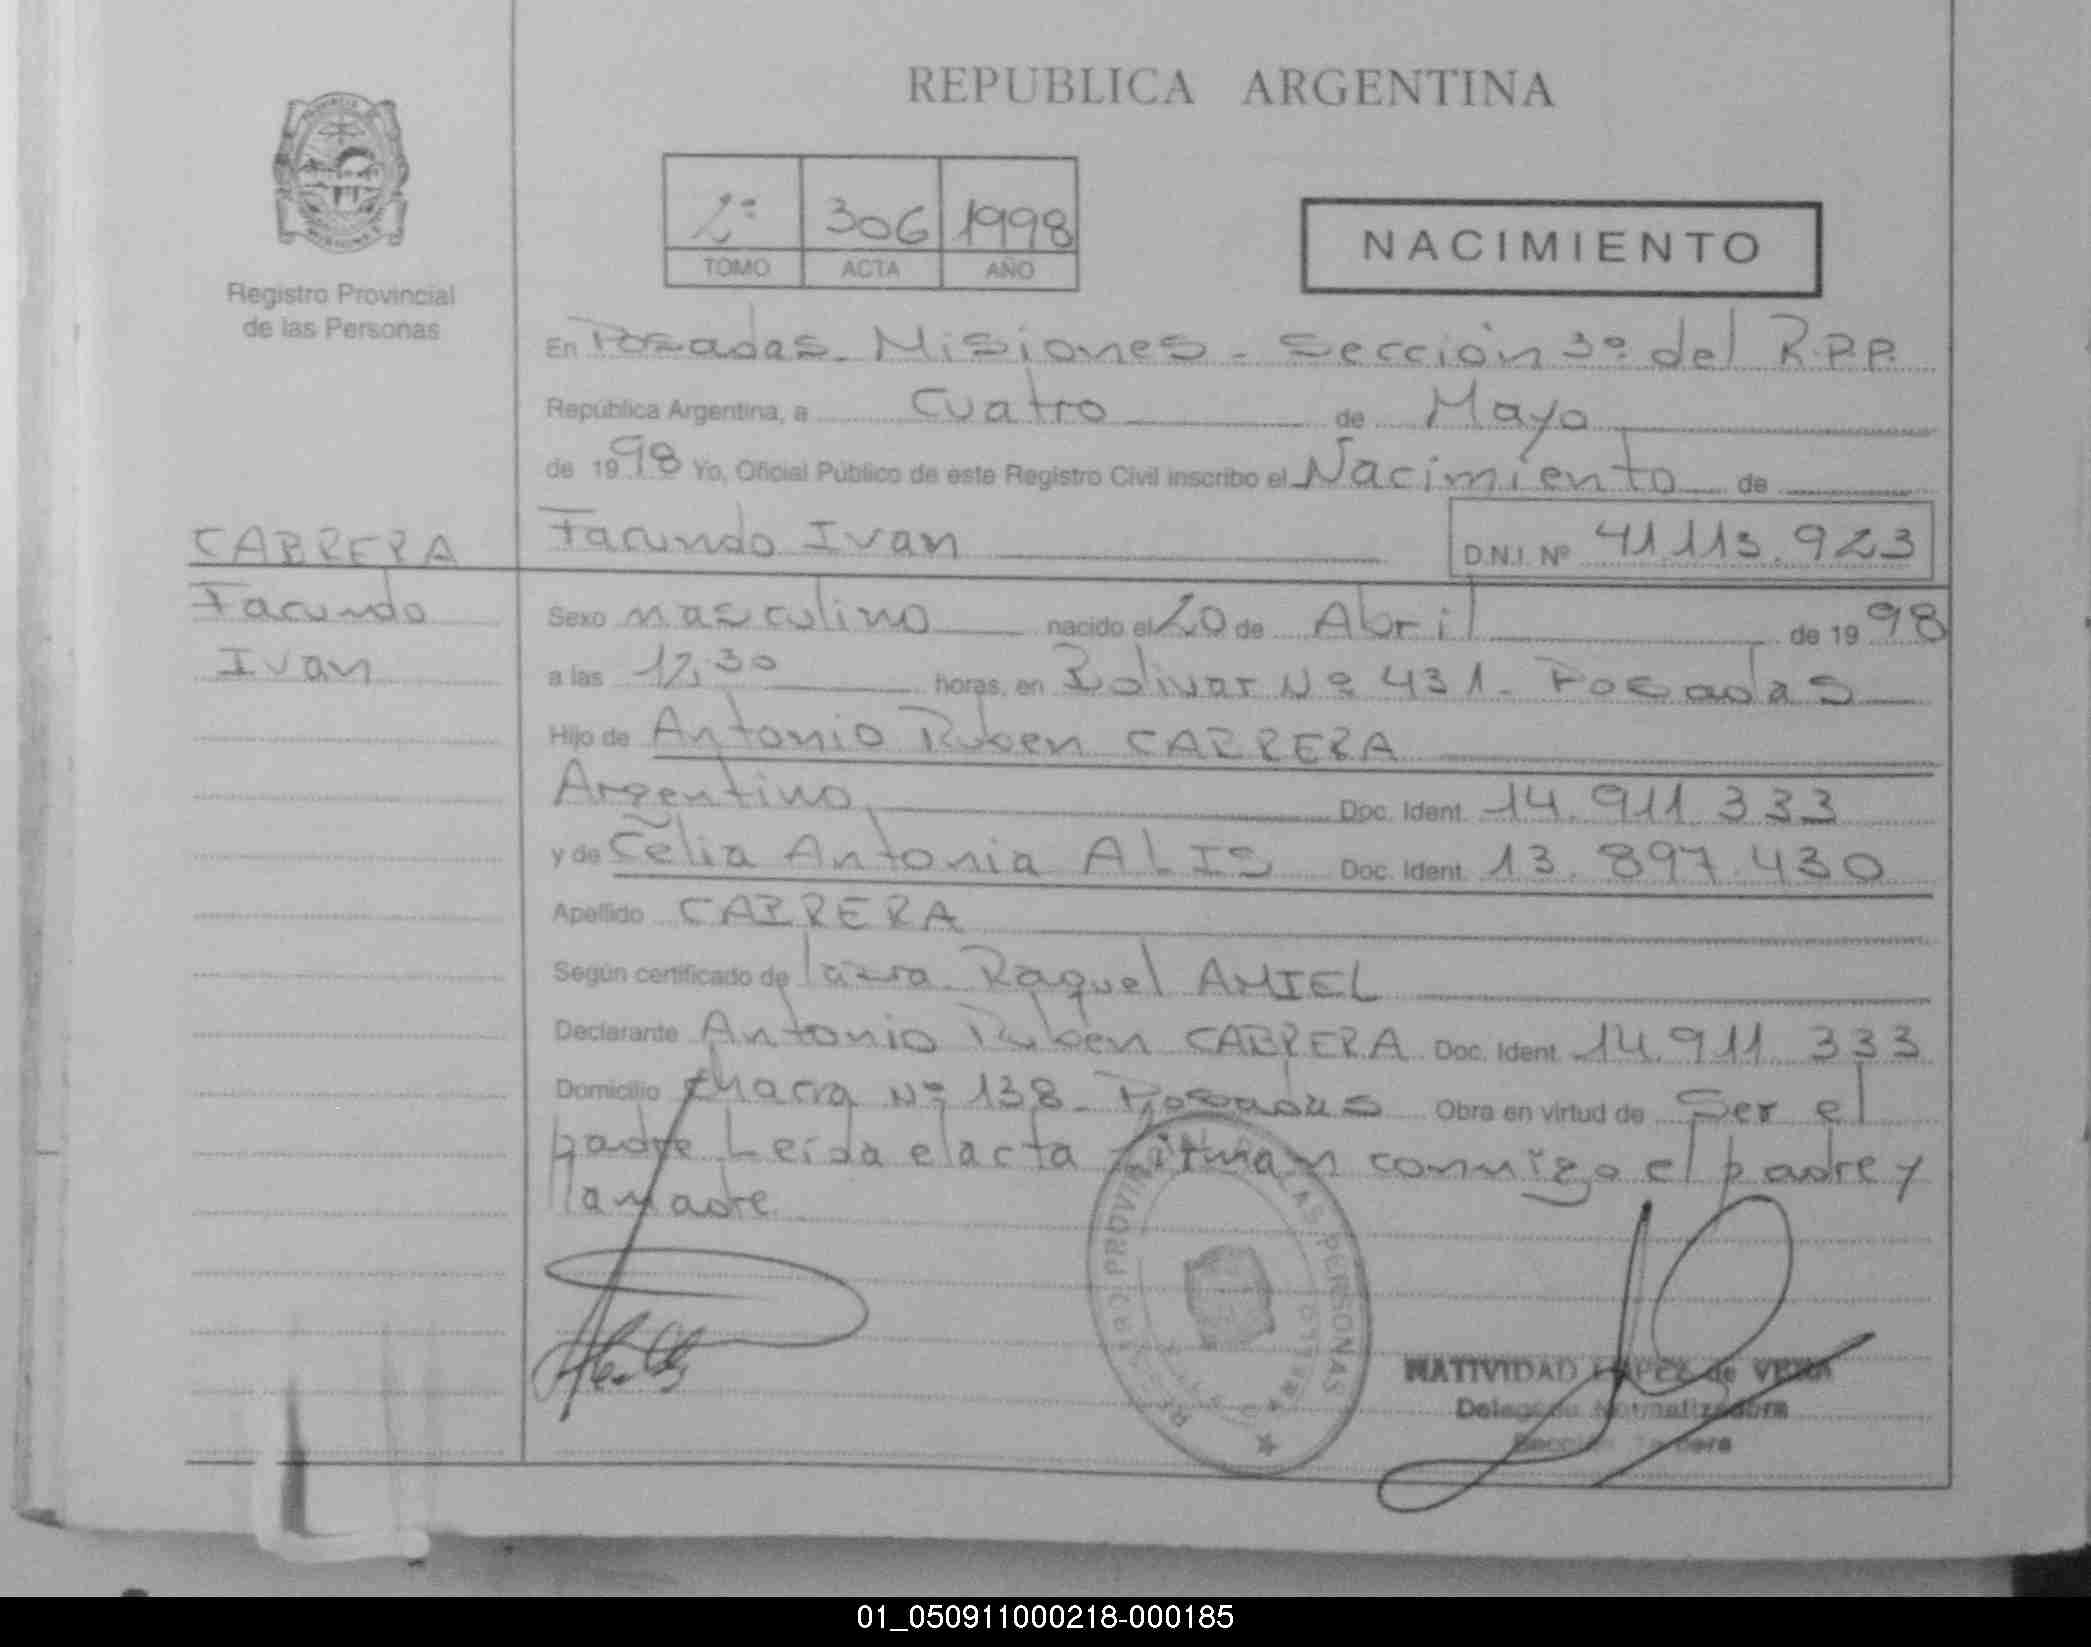 REPUBLICA ARGENTINA
Registro Provincial
de las Personas
2º 306 1998
TOMO ACTA AÑO
NACIMIENTO
En Posadas - Misiones - Sección 3º del R.P.P.
República Argentina, a Cuatro de Mayo
de 1998 Yo, Oficial Público de este Registro Civil inscribo el Nacimiento de
CABRERA
Facundo
Ivan
Facundo Ivan D.N.I. Nº 41.113.923
Sexo masculino nacido el 20 de Abril de 1998
a las 12,30 horas, en Bolivar Nº 431 - Posadas
Hijo de Antonio Ruben CABRERA
Argentino Doc. Ident. 14.911.333
y de Celia Antonia ALIS Doc. Ident. 13.897.430
Apellido CABRERA
Según certificado de Raquel AMIEL
Declarante Antonio Ruben CABRERA Doc. Ident. 14.911.333
Domicilio Chacra Nº 138 - Posadas Obra en virtud de Ser el
padre Leída el acta firman conmigo el padre y
la madre
PERSONAS
NATIVIDAD LOPEZ de VERA
Delegada Normalizadora
Sección Tercera
01_050911000218-000185